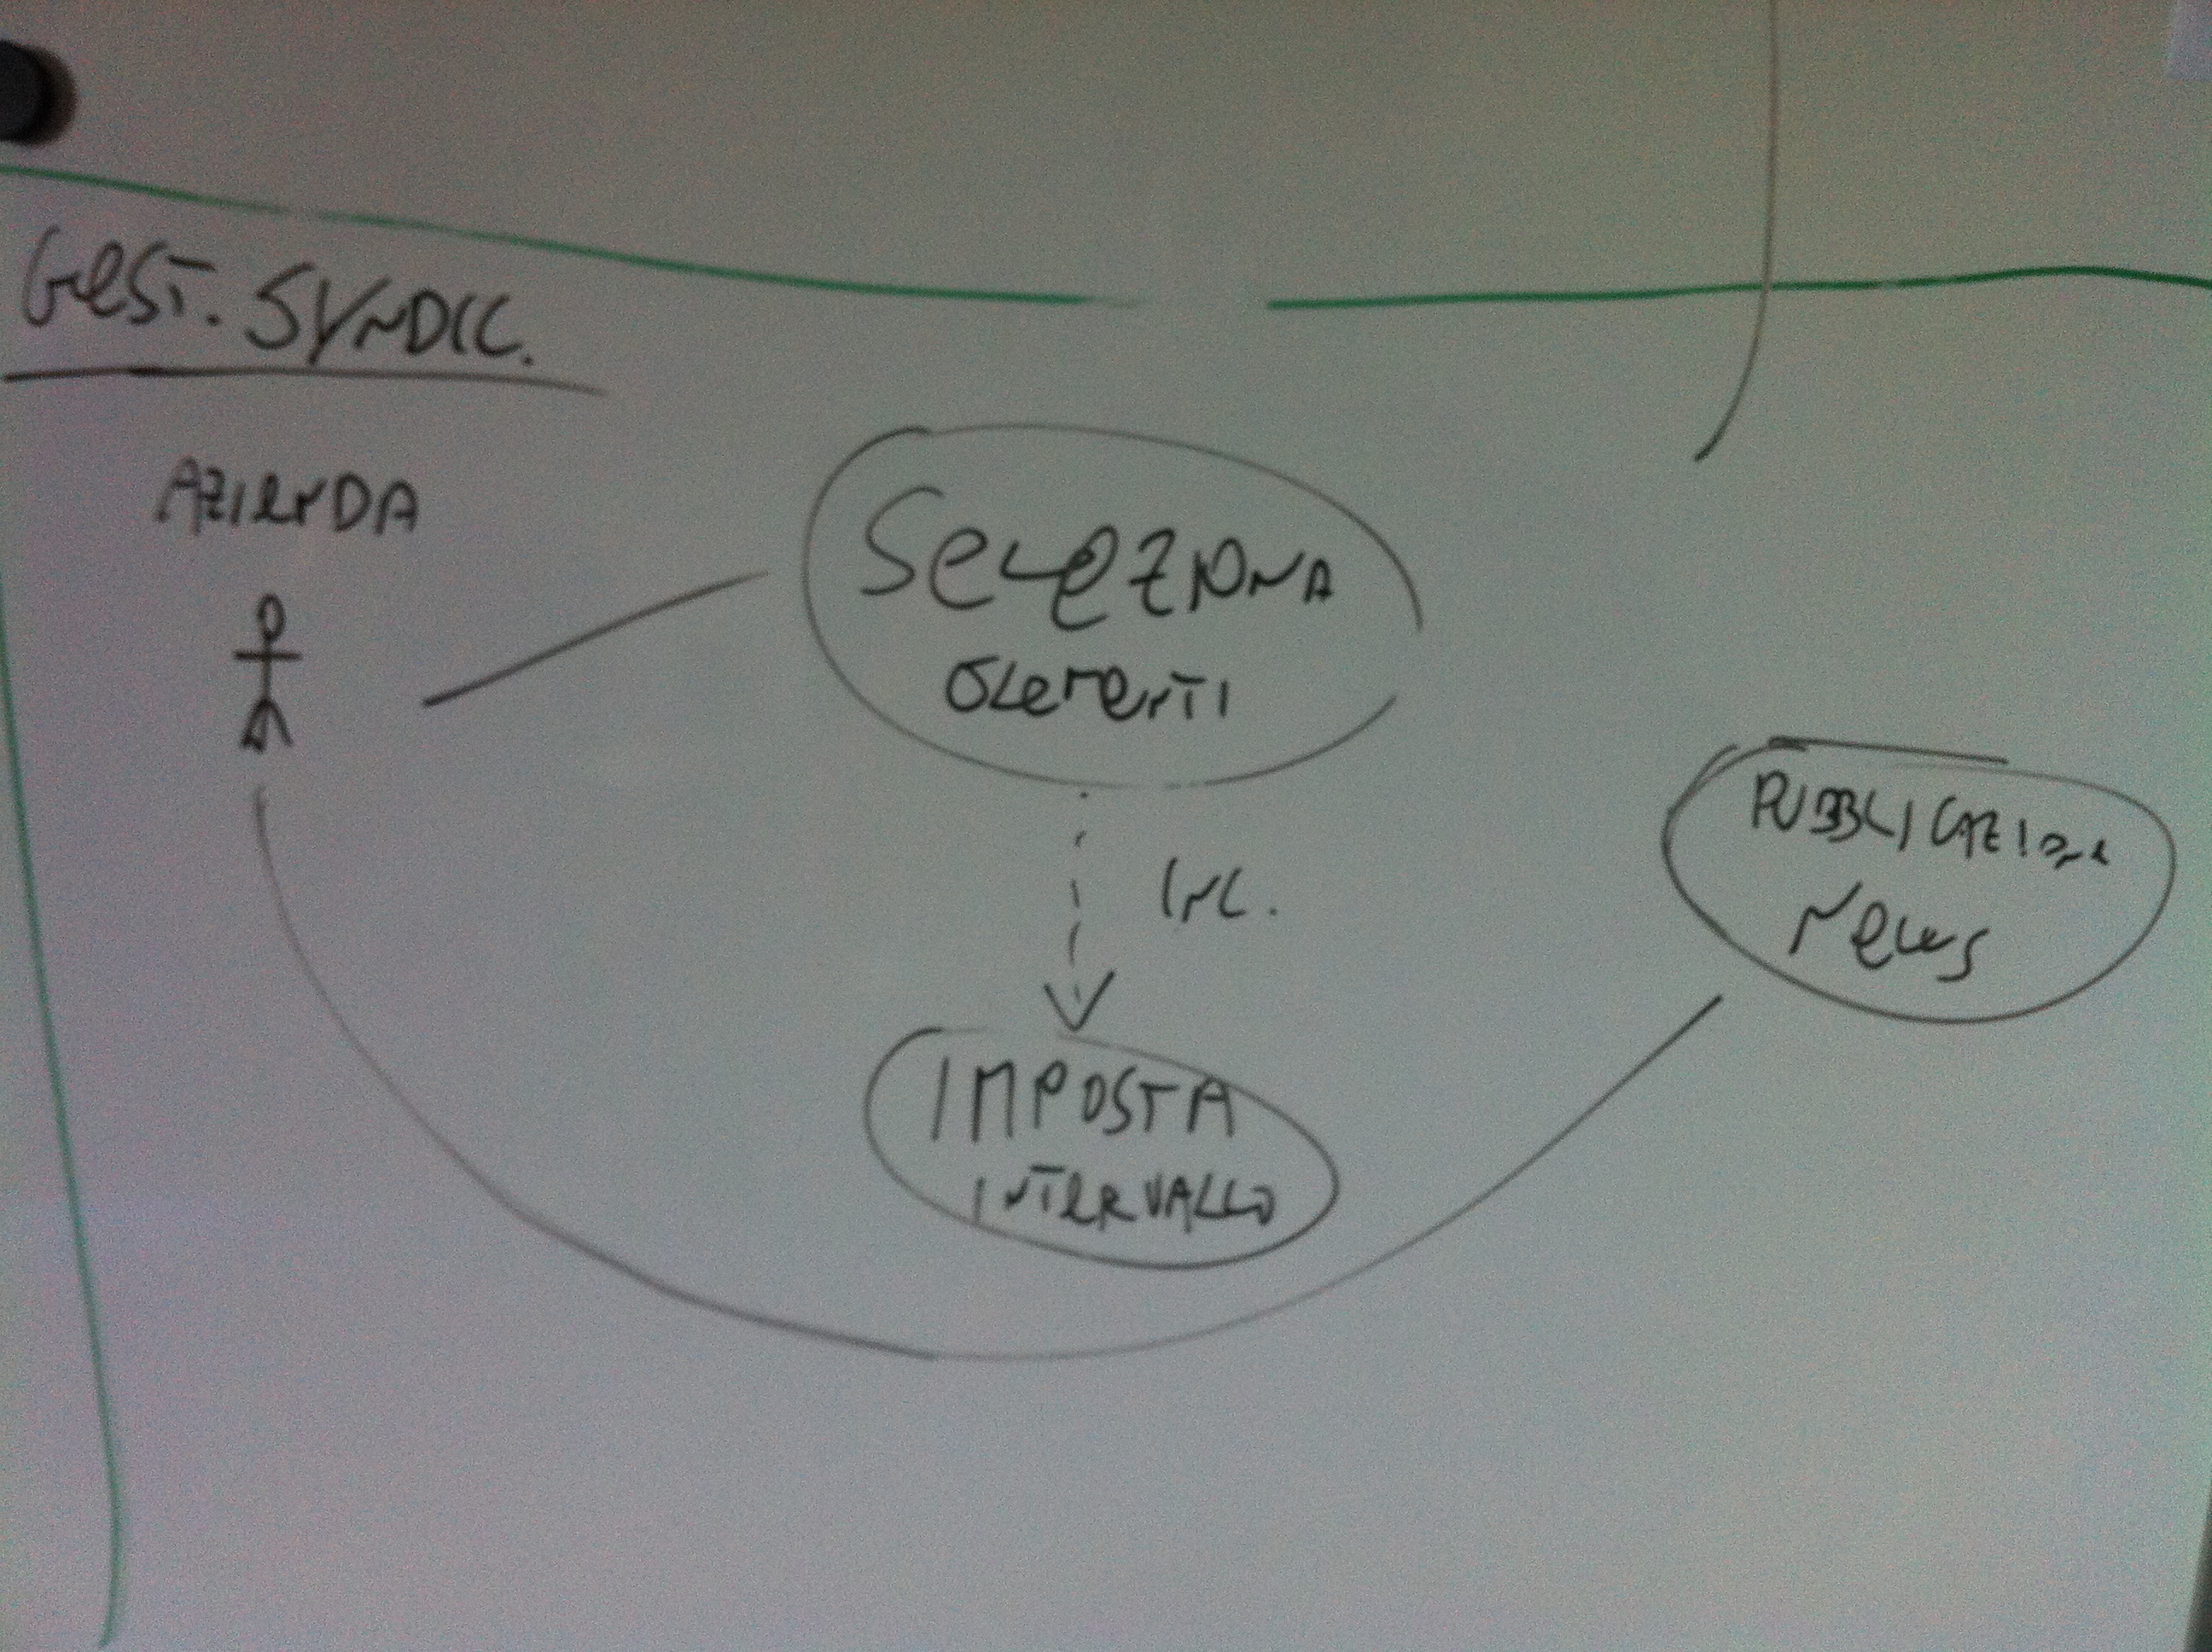 GEST. SYNDIC.
AZIENDA
SELEZIONA
ELEMENTI
INC.
IMPOSTA
INTERVALLO
PUBBLICAZIONE
NEWS